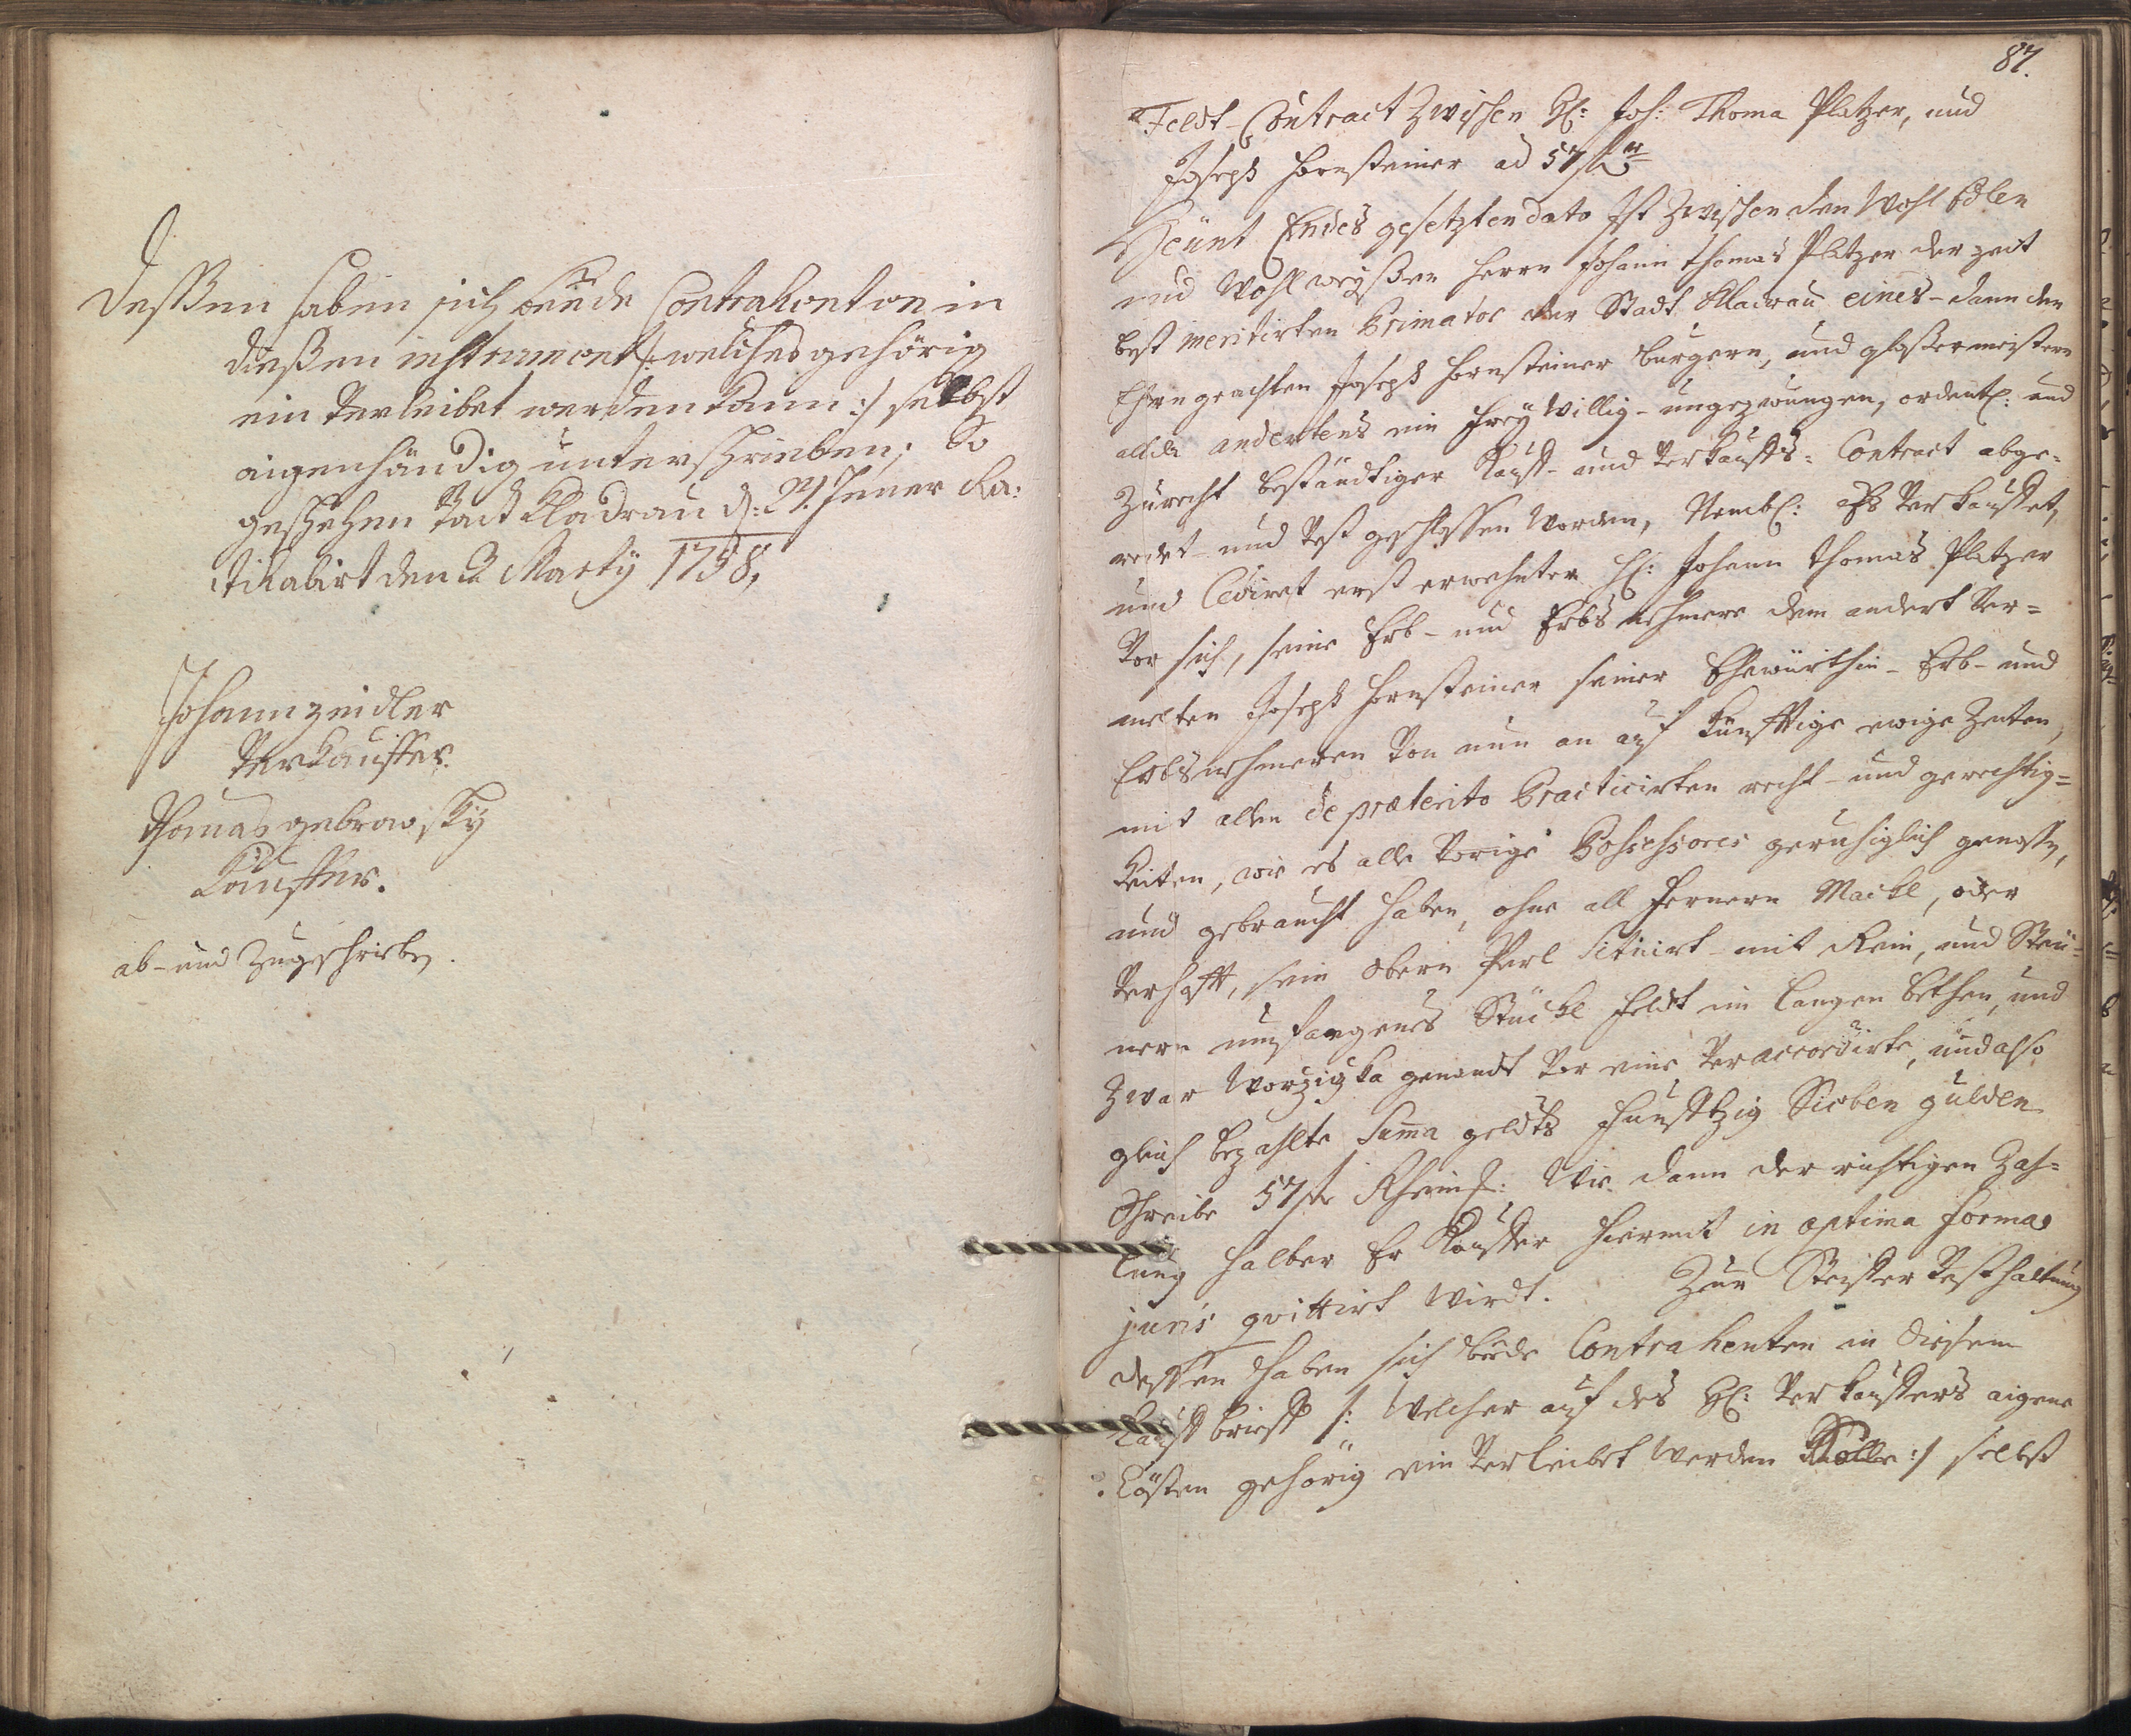 Deßßen haben sich beede Contrahenten in
dießen instrument /: welches gehörig
ein verleibet werden kann :/ selbst
aigenhändig unterschrieben, So
geschehen Stadt Kladrau d: 21. Jener Ra:
tihabirt den 3 Marty 1738,
Johann zeidler
Verkauffer.
Thomas gebrowsky
Kauffer.
ab- und Zugeschrieben.
87.
Feldt-Contract Zwischen H: Joh: Thoma Platzer, und
Joseph Hornsteiner ad 57 f
Heünt Endes gesetzten dato Ist Zwischen den Wohl Edlen
und Wohlweyßen Herrn Johann Thomas Platzer der zeit
best meritirten Primator der Stadt Kladrau eines- dann den
Ehrngeachten Joseph Hornsteiner burgern, und glaßermeistern
allda andertens ein freÿ Willig- ungezwungen, ordentl: und
Zurecht beständtiger Kauff- und Verkauffs-Contract abge-
redet- und Vest geschlossen Worden, Nembl: Es Verkauffet,
und Cediret erst erwehnter H: Johann Thomas Platzer
Vor sich, seine Erb- und Erbsnehmere dem andert Ver-
melten Joseph Hornsteiner seiner Ehewürthin- Erb- und
Erbsnehmeren Von nun an auf künfftige ewige Zeiten,
mit allen de præterito Practicirten recht- und gerechtig-
keiten, wie es alle Vorige Possessores geruhiglich genossen,
und gebraucht haben, ohne all fernern Mackl, oder
Verhafft, sein obern Perl Situirt- mit Rein, und Stei-
nern umfangenes Stückl feldt im langen bethen, und
Zwar genandt Vor eine Veraccordirte, und also
gleich bezahlte Suma geldts Funfftzig Sieben gulden
Schreibe 57 f Rheinl: Wie dann der richtigen Zah-
lung halber Er Kauffer hiermit in optima forma
juris quittirt Wirdt. Zur Steiffer Vesthaltung
dessen haben sich beede Contrahenten in diesem
Kauffbrieff /: Welcher auf des H: Verkauffers aigene
Kösten gehörig ein Verleibet Werden Solle :/ selbst